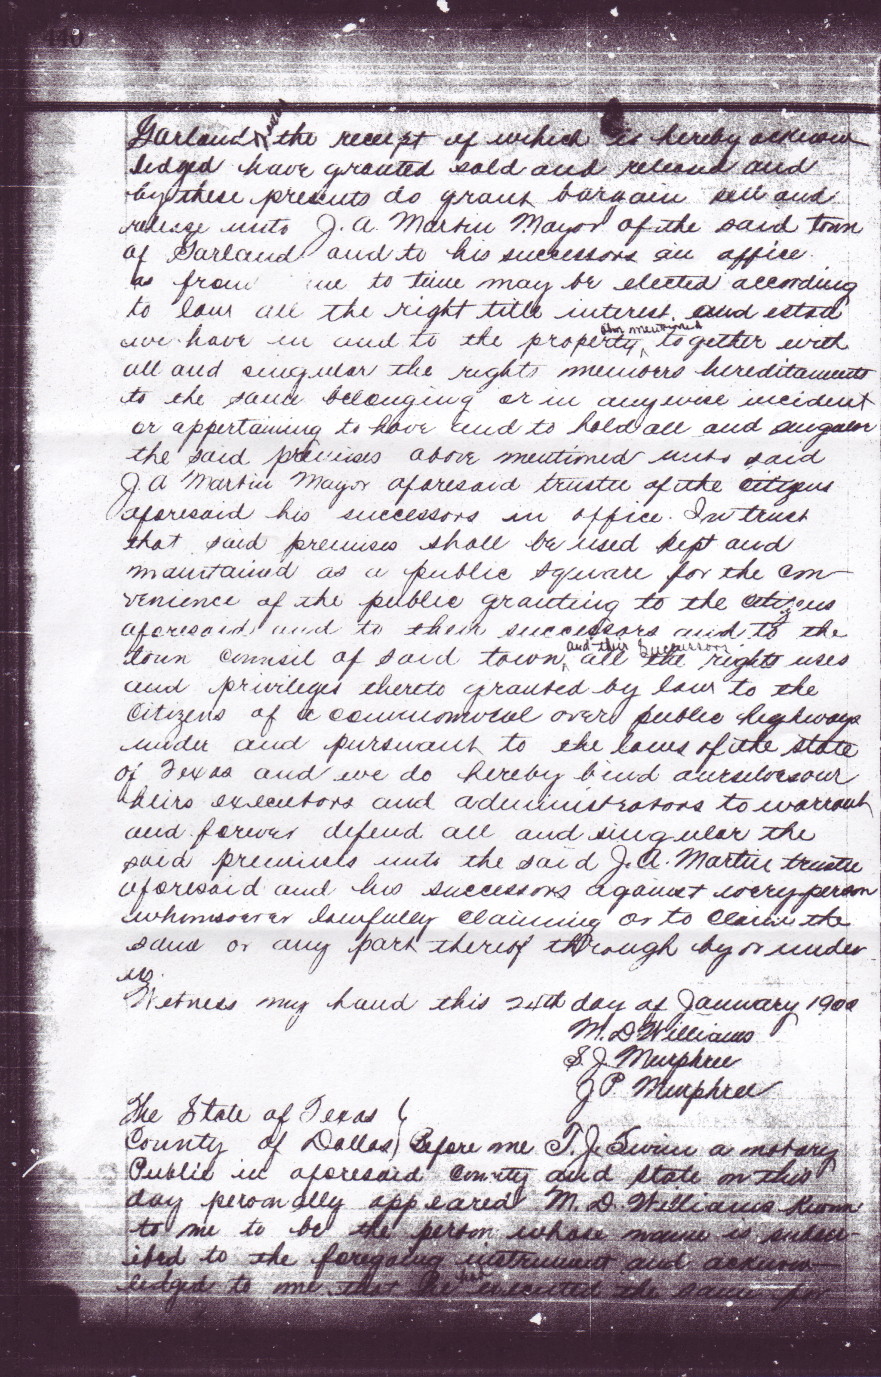 440
Garland the receipt of which is hereby acknow
ledged have granted sold and released and
by these presents do grant bargain sell and
release unto J. A. Martin Mayor of the said town
of Garland and to his successors in office
as from me to time may be elected according
to law all the right title interest and estate
we have in and to the property, abov mentioned together with
all and singular the rights members hereditaments
to the same belonging or in anywise incident
or appertaining to have and to hold all and singular
the said premises above mentioned unto said
J A Martin Mayor aforesaid trustee of the citizens
aforesaid his successors in office. In trust
that said premises shall be used kept and
maintained as a public square for the con-
venience of the public granting to the citizens
aforesaid and to their successors and to the
town council of said town, and their successors all the rights uses
and privileges thereto granted by law to the
Citizens of a commonweal over public highways
under and pursuant to the laws of the state
of Texas and we do hereby bind ourselves our
heirs executors and administrators to warrant
and forever defend all and singular the
said premises unto the said J. A. Martin trustee
aforesaid and his successors against every person
whomsoever lawfully claiming or to claim the
same or any part thereof through by or under
us.
Witness my hand this 24th day of January 1900
M. D Williams
S. J. Murphree
J P. Murphree
The State of Texas (
County of Dallas) Before me T. J. Swim a notary
Public in aforesaid County and State on this
day personally appeared M. D. Williams known
to me to be the person whose name is subscr-
ibed to the foregoing instrument and acknow-
ledged to me that he had executed the same for